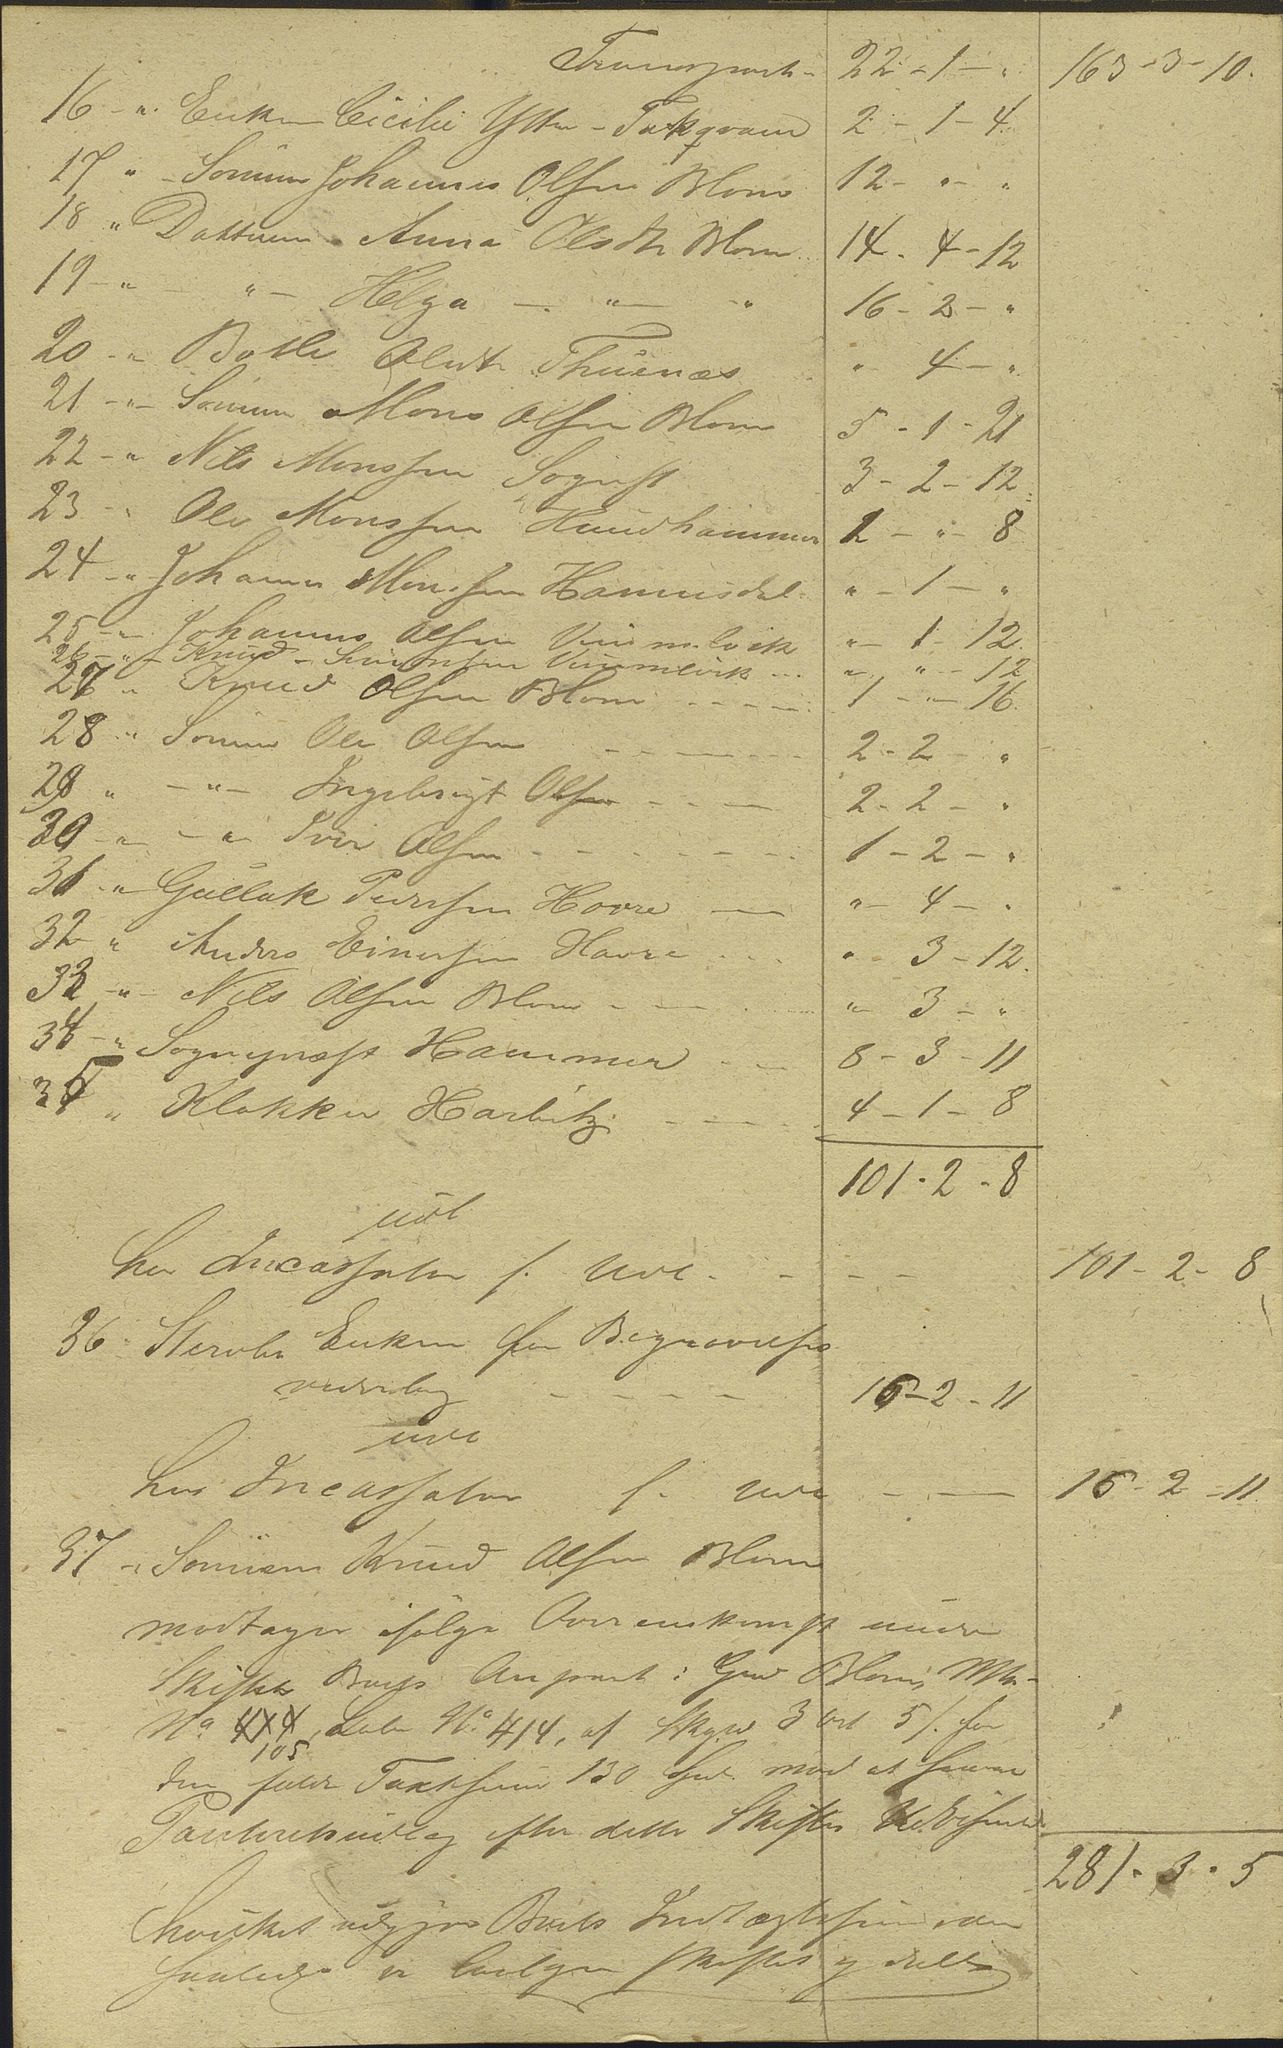 Transport - 22 - 1 - " 163 - 3 - 10.
16 - " Enken Cicilie Ytre - Takqvam 2 - 1 - 4.
17 " - Sønnen Johannes Olsen Blom 12 - " - "
18 " Datteren Anna Olsdtr Blom 14 - 4 - 12
19 - " - " - Helga - " - " 16 - 2 - "
20 - " Botle Olsdtr Thunæs " - 4 - "
21 - " - Sønnen Mons Olsen Blom 5 - 1 - 21
22 - " Nils Monssen 3 - 2 - 12
23 - " Ole Monssen Hundhammer 2 - " - 8
24 - " Johannes Monssen Hannisdal " - 1 - "
25 - " Johannes Olsen Vimmelvik " - 1 - 12.
26 - " - Knud Vimmelvik ... " - " - 12
27 " Knud Olsen Blom - - - - 1 - " - 16.
28 " Sønnen Ole Olsen - - - - 2 - 2 - "
29 " - " - Ingebrigt Olsen - - - 2 - 2 - "
30 - " - " Iver Olsen - - - - - 1 - 2 - "
31 - " Gullak Pedersen Havre - " - 4 - "
32 - " Anders Einersen Havre - - - " - 3 - 12.
33 - " - Nils Olsen Blom - - - " - 3 - "
34 - " Sognepræst Hammer - - 8 - 3 - 11
35 " Klokker Harbitz - - - - 4 - 1 - 8
101 - 2 - 8
udl
hos Incassator f. udl. - - - - 101 - 2 - 8
36 - Stervbo Enken for Begravelses
vederlag - - - - - 15 - 2 - 11
udl
hos Incassator f. udl - - 15 - 2 - 11
37 - " Sønnen Knud Olsen Blom
modtager ifølge Overenskomst under
Skiftet Boets Anpart i Grd Blom, Mtr-
No 414, Løbe No 414, af Skyld 3 ort 5 ß. for
105
den fulde Taxtsum 130 Spd. mod at svare
Panteretsudlæg efter dette Skiftes
281 - 3 - 5
hvilket udgjør Boets Indtægtssum og er
saaledes skiftet og delt